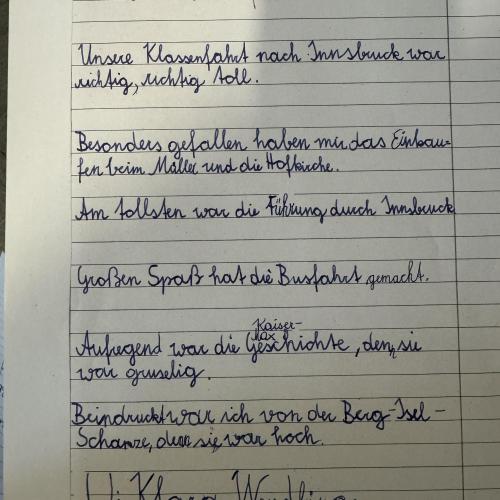 Unsere Klassenfahrt nach Innsbruck war
richtig, richtig toll.
Besonders gefallen haben mir das Einkau-
fen beim Müller und die Hofkirche.
Am tollsten war die Führung durch Innsbruck
Großen Spaß hat die Busfahrt gemacht.
Kaiser-
Max
Aufregend war die Geschichte, denn sie
war gruselig.
Beindruckt war ich von der Berg-Isel-
Schanze, denn sie war hoch.